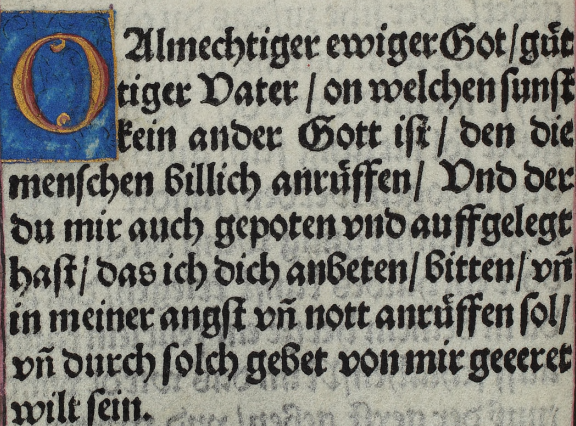 O Almechtiger ewiger Got/ guͤt
tiger Vater / on welchen sunst
kein ander Gott ist / den die
menschen billich anruͤffen/ Vnd der
du mir auch gepoten vnd auffgelegt
hast/ das ich dich anbeten/ bitten/ vn̄
in meiner angst vn̄ nott anruͤffen sol/
vn̄ durch solch gebet von mir geeeret
wilt sein.